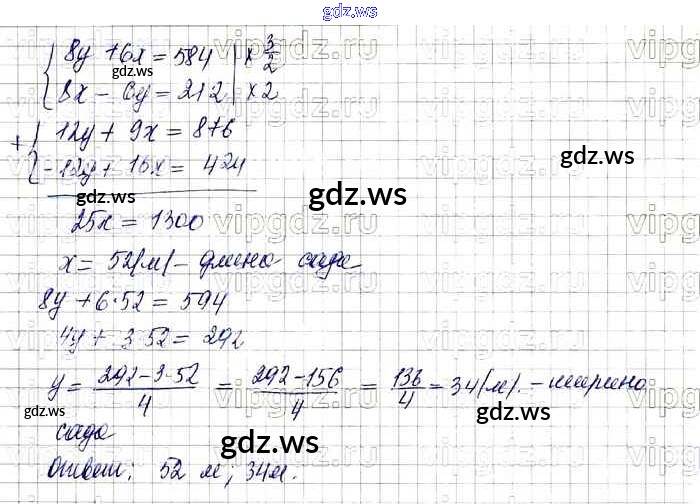 gdz.ws
{ 8y + 6x = 584 | × 3/2
8x - 6y = 212 | × 2
gdz.ws
+ { 12y + 9x = 876
-12y + 16x = 424
gdz.ws
gdz.ws
gdz.ws
25x = 1300
x = 52(м) - длина сада
8y + 6·52 = 594
4y + 3·52 = 292
y = (292-3·52)/4 = (292-156)/4 = 136/4 = 34(м). - ширина
gdz.ws
gdz.ws
сада
gdz.ws
gdz.ws
Ответ: 52 м; 34м.